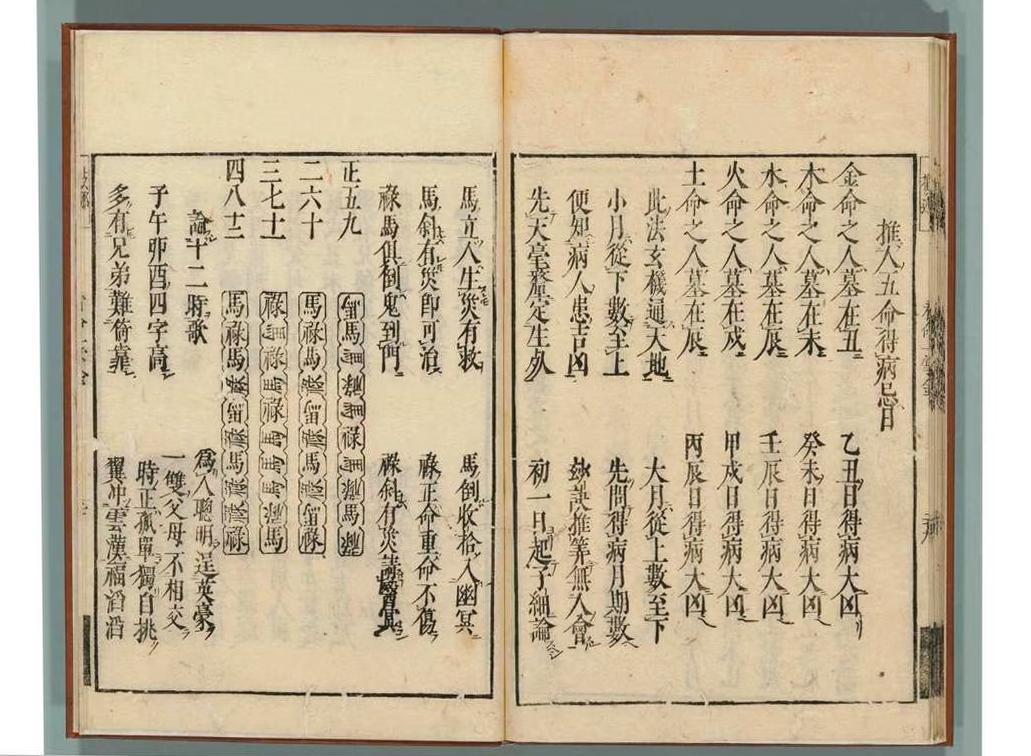 推人五命得病忌日
金命之人墓在丑 乙丑日得病大凶
木命之人墓在未 癸未日得病大凶
水命之人墓在辰 壬辰日得病大凶
火命之人墓在戌 甲戌日得病大凶
土命之人墓在辰 丙辰日得病大凶
此法玄機通天地 大月從上數至下
小月從下數至上 先問得病月期數
便知病人患吉凶 妙訣推筭無人會
先天毫釐定生死 初一日起子細論
馬立人生災有救 馬倒收拾入幽冥
馬斜有災即可治 祿正命重命不傷
祿馬俱倒鬼到門 祿斜有災請醫
正五九
二六十
三七十一
四八十二
論十二時歌
子午卯酉四字高 爲人聰明逞英豪
一雙父母不相交
時正孤單獨自挑
多有兄弟難倚靠 翼冲雲漢福滔滔